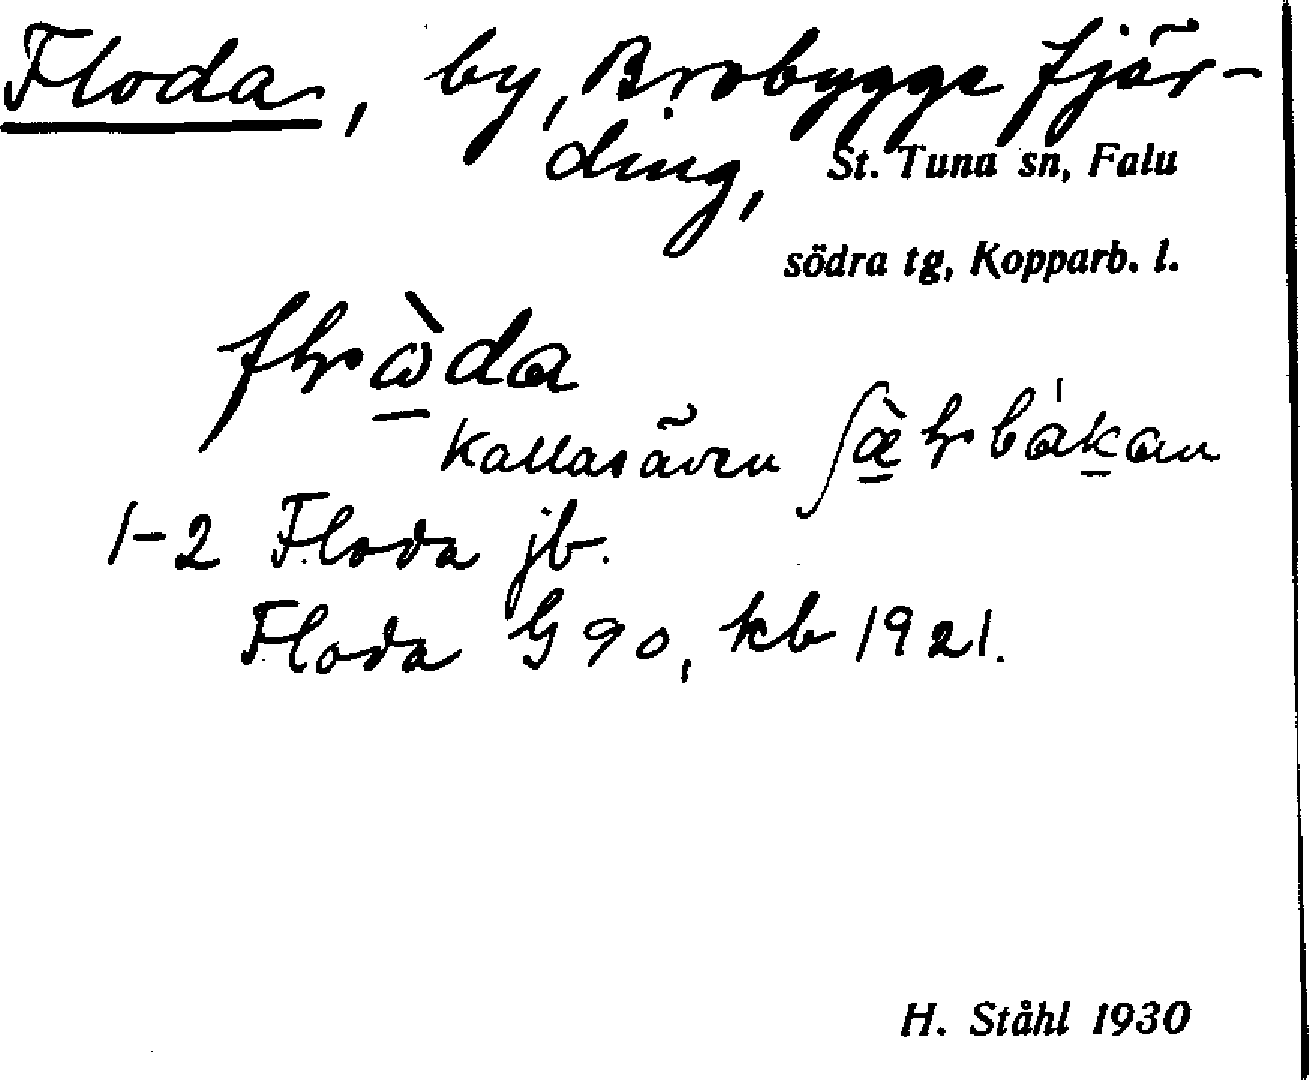 Floda, by, Brobygge fjär-
ding, St. Tuna sn, Falu
södra tg, Kopparb. l.
Kallas även
1-2 Floda jb.
Floda G 90, kb 1921.
H. Ståhl 1930